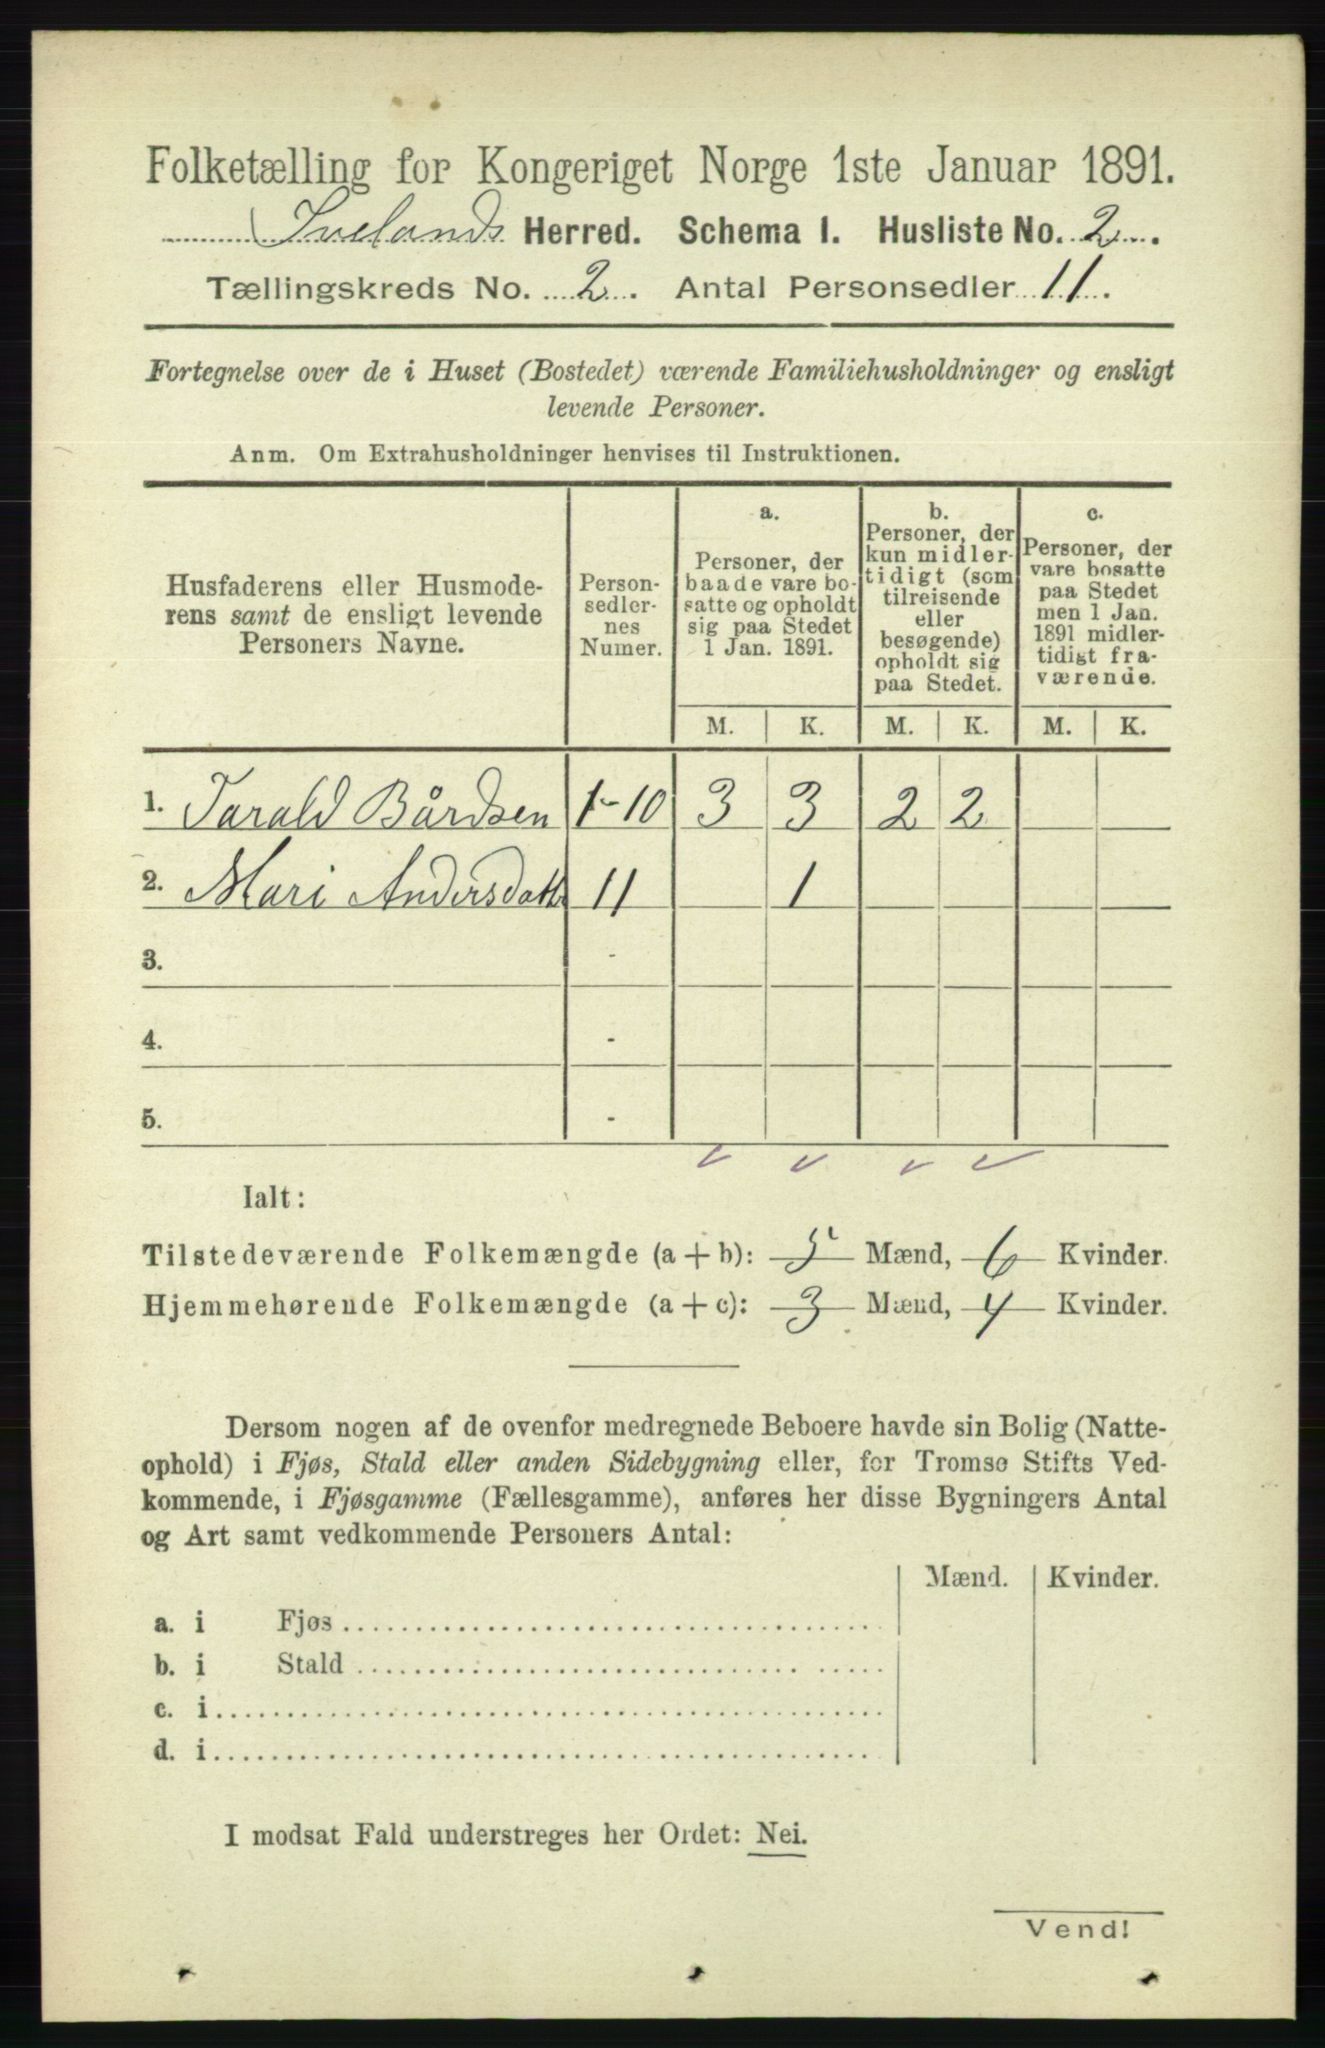 Folketælling for Kongeriget Norge 1ste Januar 1891.
Ivelands Herred. Schema I. Husliste No. 2.
Tællingskreds No. 2. Antal Personsedler 11.
Fortegnelse over de i Huset (Bostedet) værende Familiehusholdninger og ensligt
levende Personer.
Anm. Om Extrahusholdninger henvises til Instruktionen.
Husfaderens eller Husmode-
rens samt de ensligt levende
Personers Navne.
Person-
sedler-
nes
Numer.
a.
Personer, der
baade vare bo-
satte og opholdt
sig paa Stedet
1 Jan. 1891.
b.
Personer, der
kun midler-
tidigt (som
tilreisende
eller
besøgende)
opholdt sig
paa Stedet.
c.
Personer, der
vare bosatte
paa Stedet
men 1 Jan.
1891 midler-
tidigt fra-
værende.
M. K. M. K. M. K.
1. Tarald Bårdsen 1-10 3 3 2 2
2. Mari Andersdatter 11 1
3. -
4. -
5. -
Ialt:
Tilstedeværende Folkemængde (a + b): 5 Mænd, 6 Kvinder.
Hjemmehørende Folkemængde (a + c): 3 Mænd, 4 Kvinder.
Dersom nogen af de ovenfor medregnede Beboere havde sin Bolig (Natte-
ophold) i Fjøs, Stald eller anden Sidebygning eller, for Tromsø Stifts Ved-
kommende, i Fjøsgamme (Fællesgamme), anføres her disse Bygningers Antal
og Art samt vedkommende Personers Antal:
Mænd. Kvinder.
a. i Fjøs
b. i Stald
c. i
d. i
I modsat Fald understreges her Ordet: Nei.
Vend!